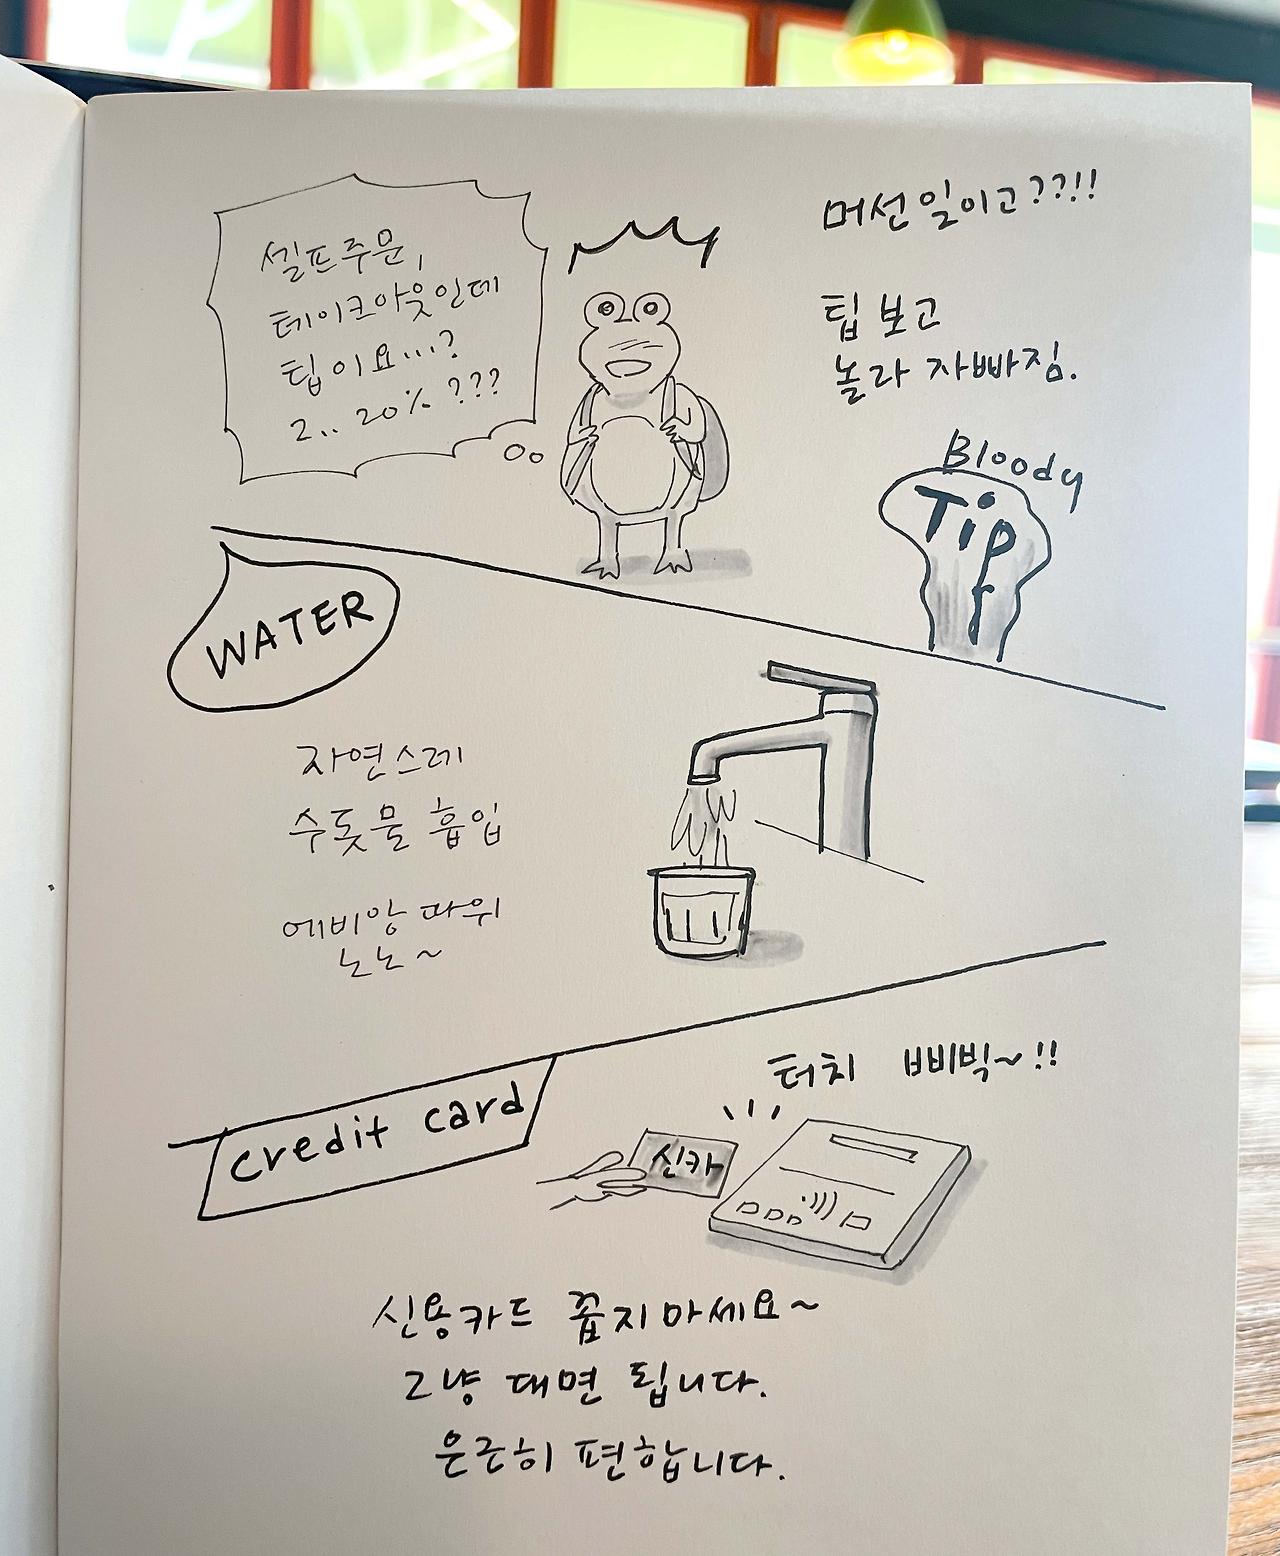 셀프주문,
테이크아웃인데
팁이요...?
2.. 20% ???
머선일이고??!!
팁 보고
놀라 자빠짐.
Bloody
Tip
WATER
자연스레
수돗물 흡입
에비앙 따위
노노~
credit card
터치 삐빅~!!
신카
신용카드 꼽지마세요~
그냥 대면 됩니다.
은근히 편합니다.